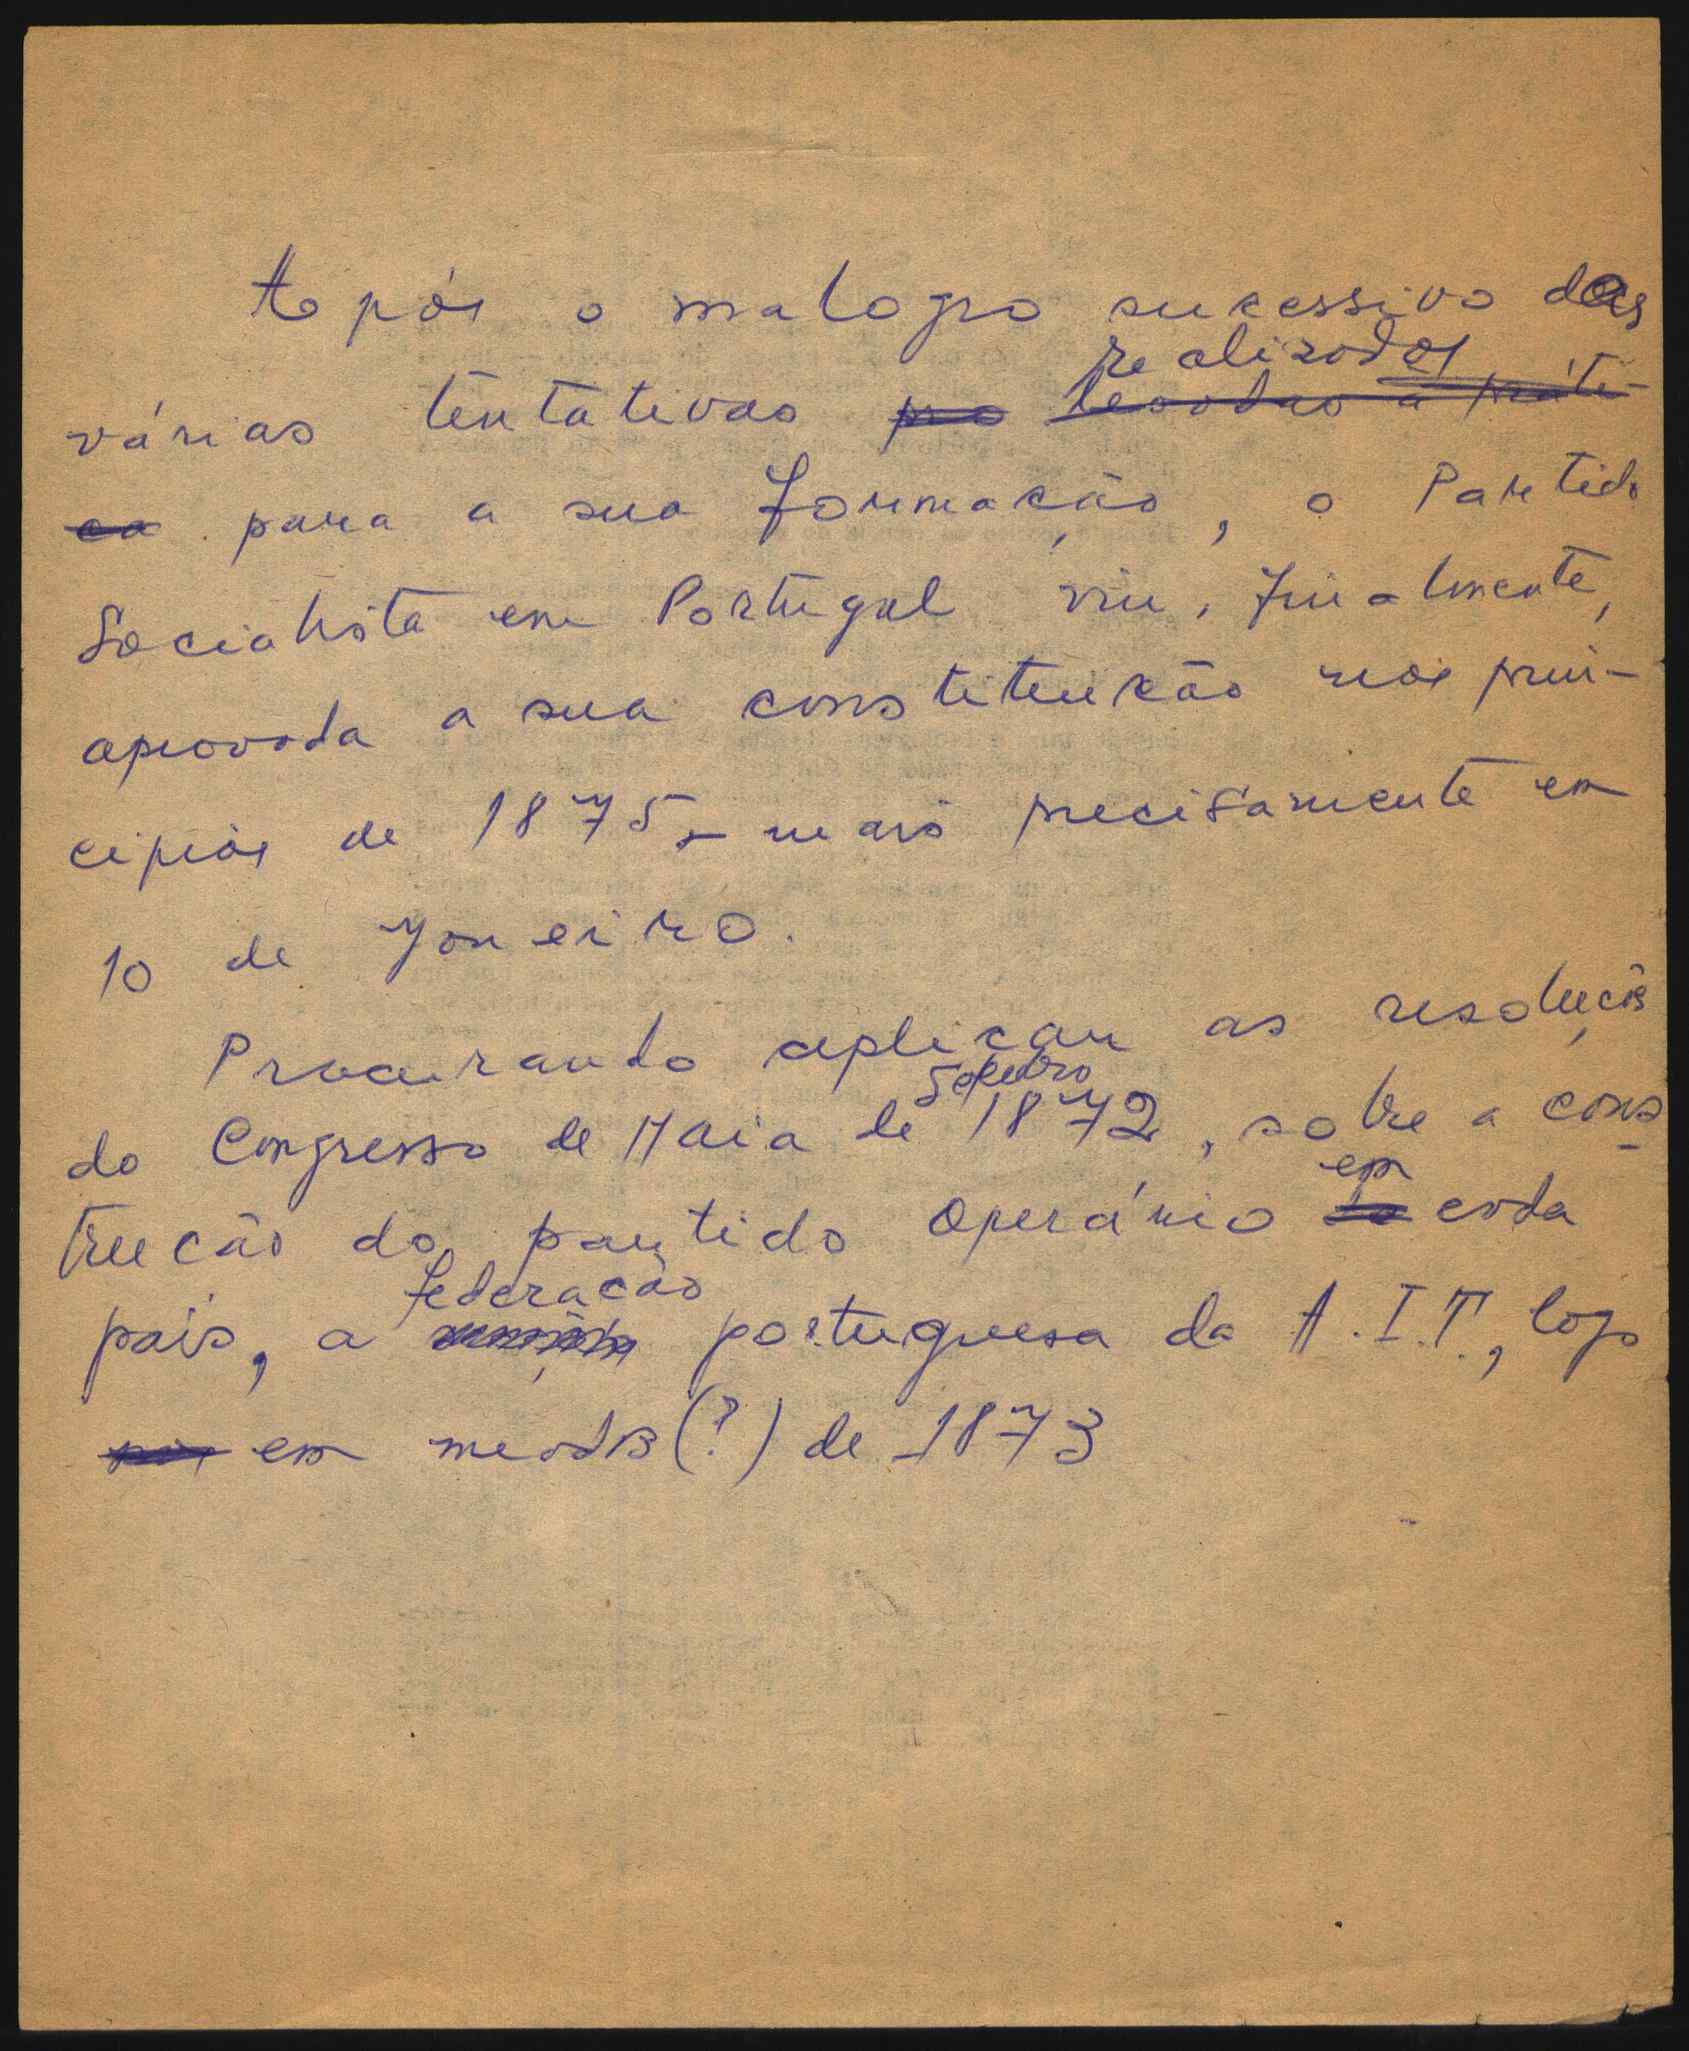 Após o malogro sucessivo das
realizadas
várias tentativas pro levadas à práti-
ca para a sua formação, o Partido
Socialista em Portugal viu, finalmente,
aprovada a sua constituição nos prin-
cipios de 1875, mais precisamente em
10 de Janeiro.
Procurando aplicar as resoluções
Setembro
do Congresso de Haia de 1872, sobre a cons
em
trução do partido operário de cada
país, a
federação
portuguesa da A.I.T., logo
em meados (?) de 1873